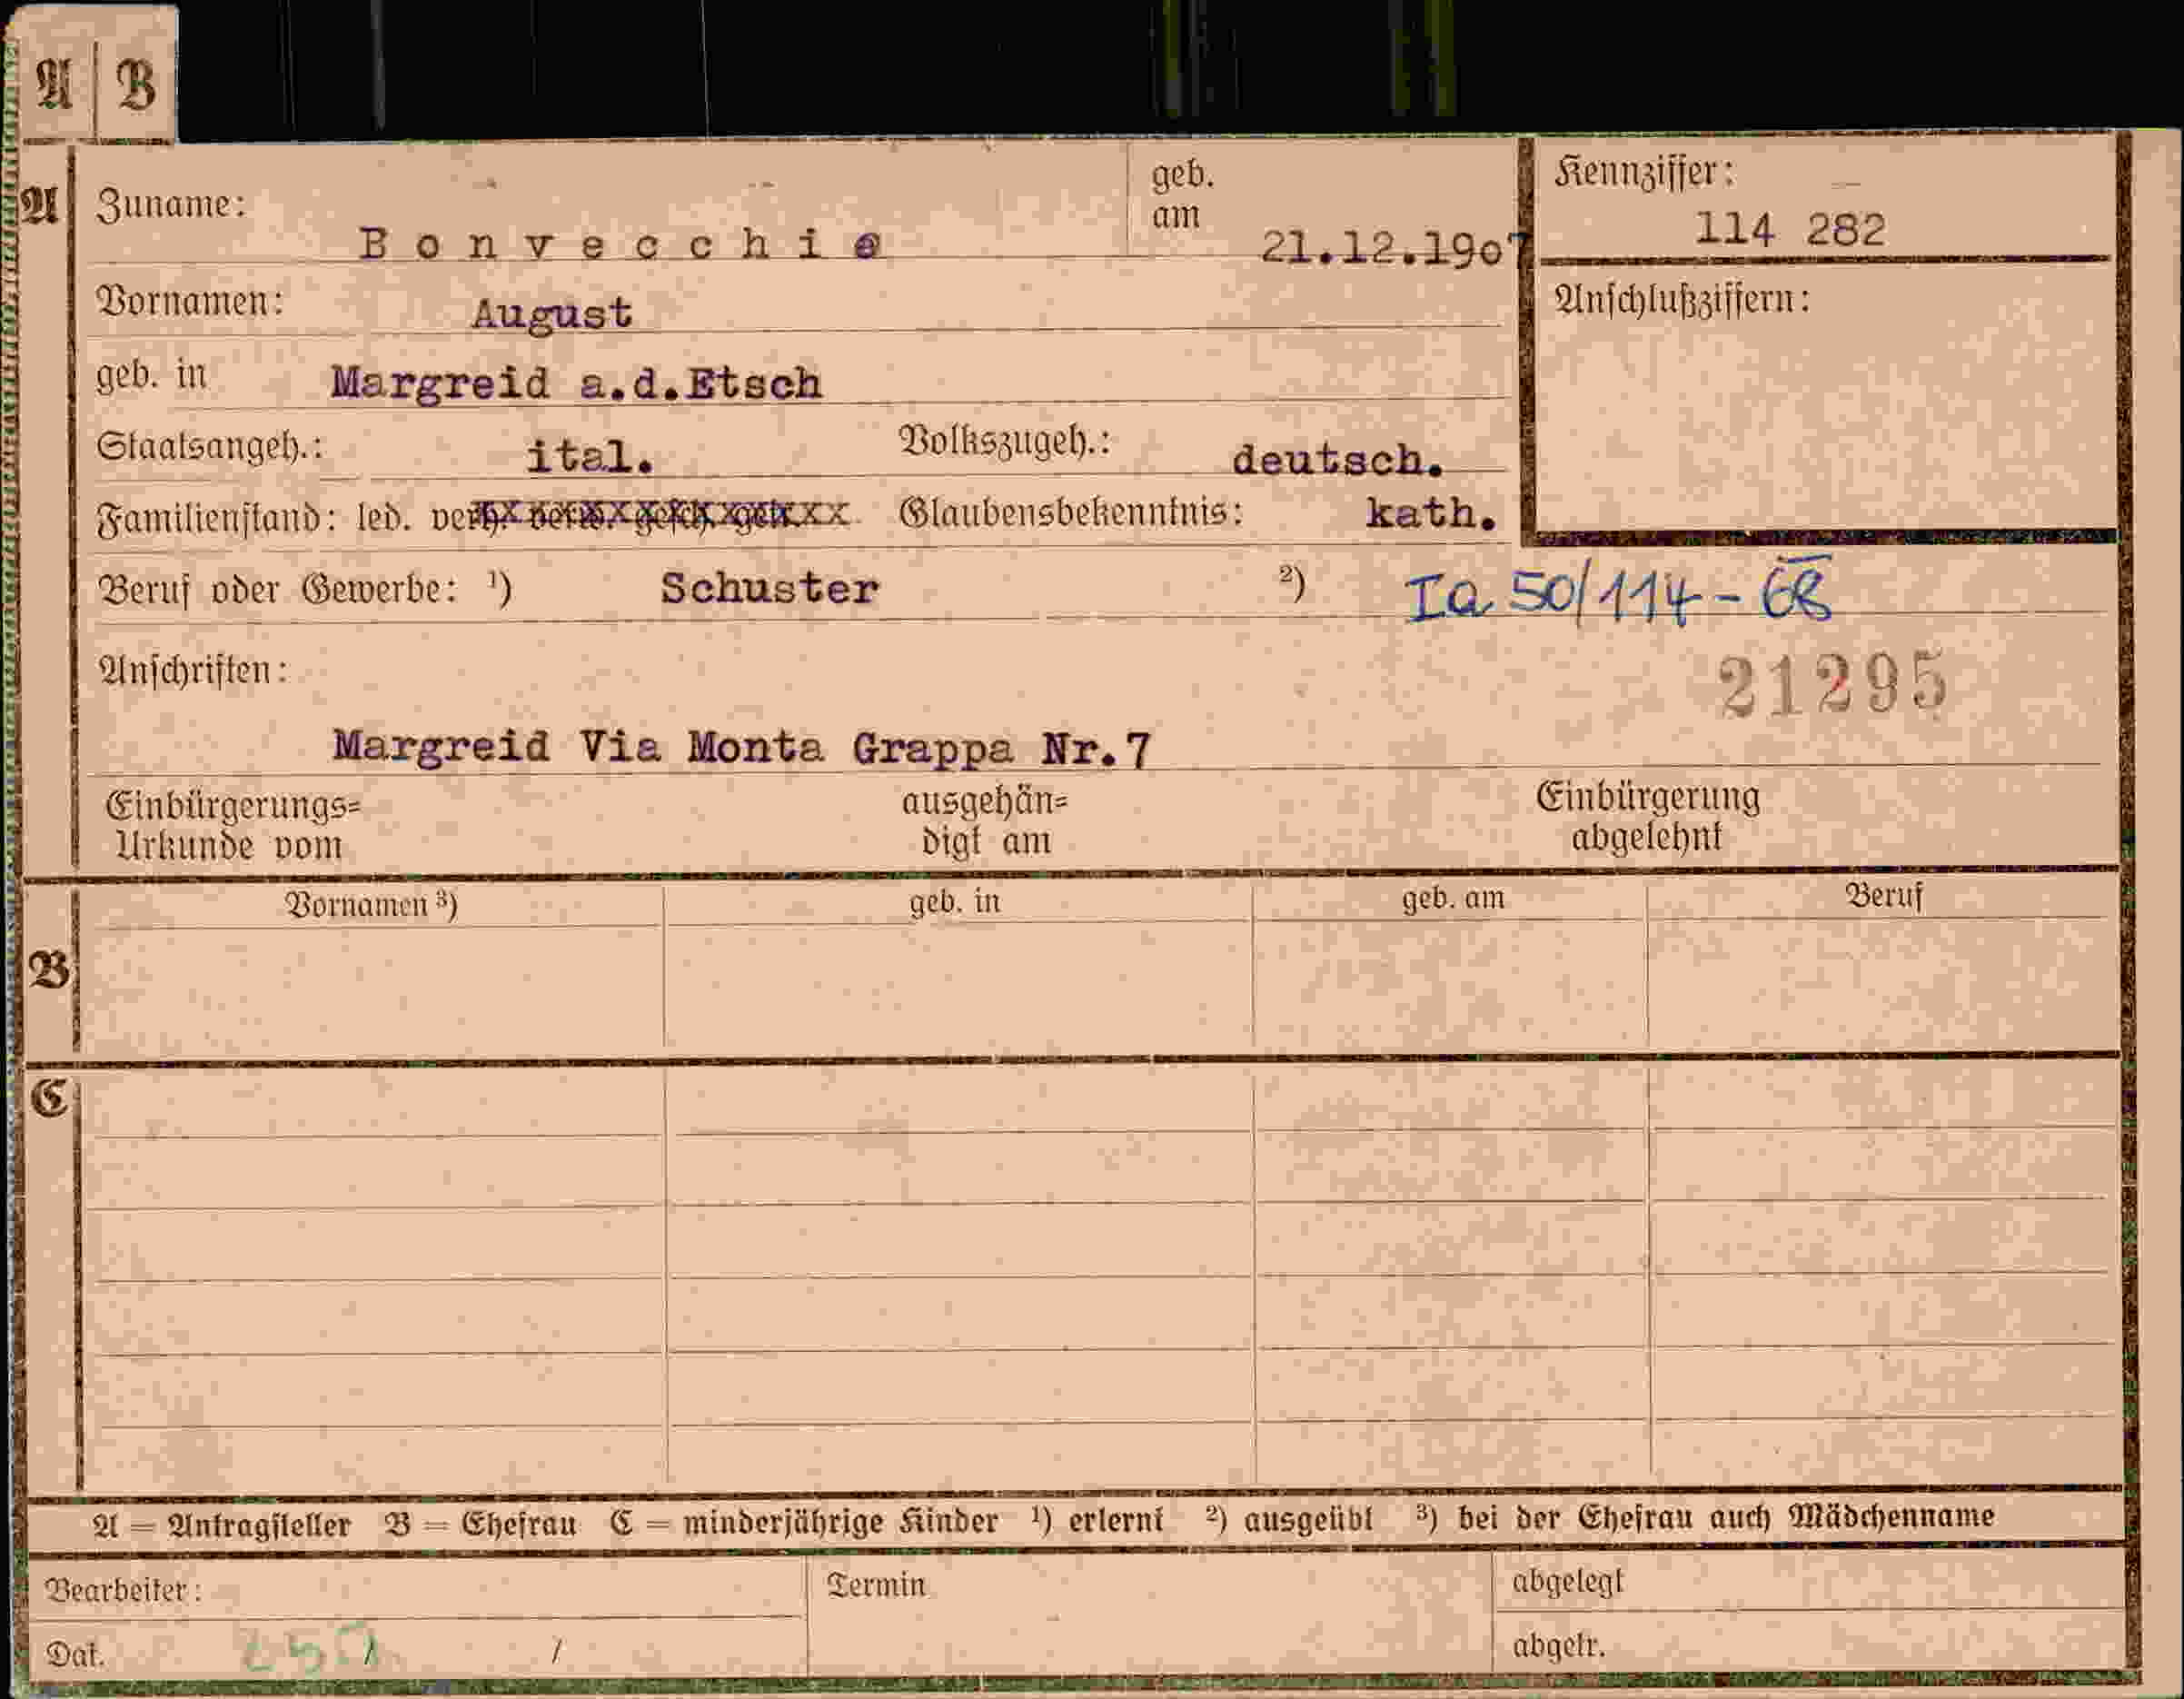 A B
A Zuname: Bonvecchio geb. am 21.12.1907 Kennziffer: 114 282
Vornamen: August Anschlußziffern:
geb. in Margreid a.d.Etsch
Staatsangeh.: ital. Volkszugeh.: deutsch.
Familienstand: led. verh. verw. gesch. getr. Glaubensbekenntnis: kath.
Beruf oder Gewerbe: ¹) Schuster ²) Ia 50/114-68
Anschriften: 21295
Margreid Via Monta Grappa Nr.7
Einbürgerungs= ausgehän= Einbürgerung
Urkunde vom digt am abgelehnt
Vornamen ³) geb. in geb. am Beruf
B
C
A = Antragsteller B = Ehefrau C = minderjährige Kinder ¹) erlernt ²) ausgeübt ³) bei der Ehefrau auch Mädchenname
Bearbeiter: Termin abgelegt
Dat. / / abgetr.